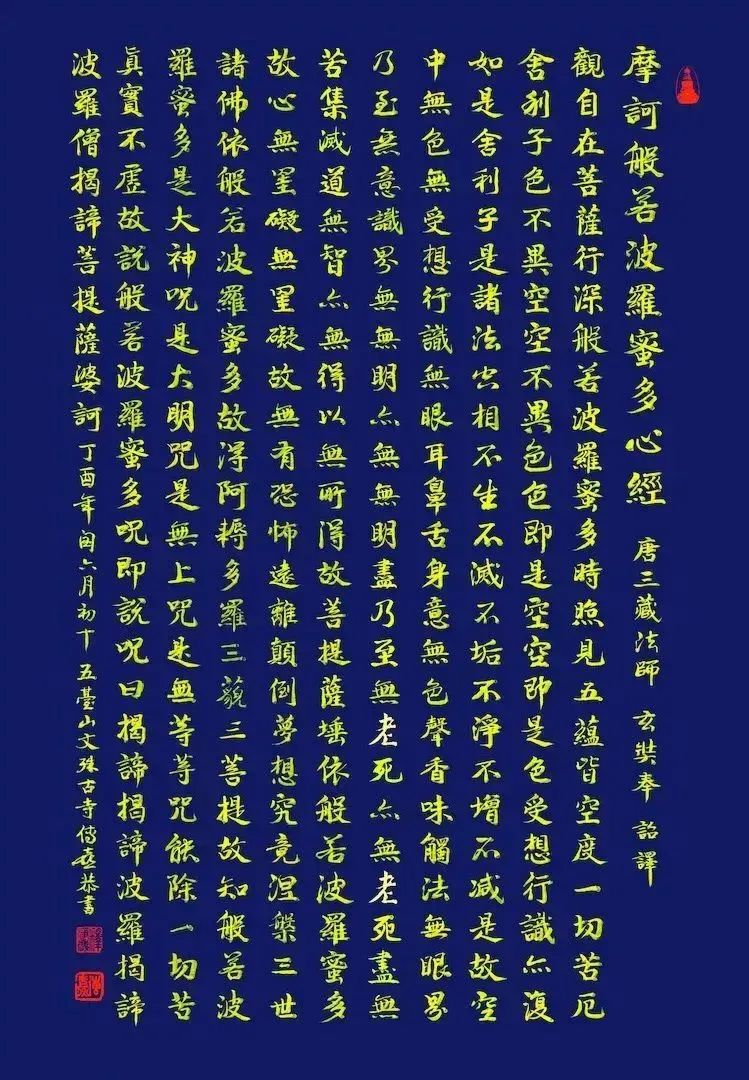 摩訶般若波羅蜜多心經 唐三藏法師 玄奘奉 詔譯
觀自在菩薩行深般若波羅蜜多時照見五蘊皆空度一切苦厄
舍利子色不異空空不異色色即是空空即是色受想行識亦復
如是舍利子是諸法空相不生不滅不垢不淨不增不減是故空
中無色無受想行識無眼耳鼻舌身意無色聲香味觸法無眼界
乃至無意識界無無明亦無無明盡乃至無老死亦無老死盡無
苦集滅道無智亦無得以無所得故菩提薩埵依般若波羅蜜多
故心無罣礙無罣礙故無有恐怖遠離顛倒夢想究竟涅槃三世
諸佛依般若波羅蜜多故得阿耨多羅三藐三菩提故知般若波
羅蜜多是大神咒是大明咒是無上咒是無等等咒能除一切苦
眞實不虛故說般若波羅蜜多咒即說咒曰揭諦揭諦波羅揭諦
波羅僧揭諦菩提薩婆訶 丁酉年閏六月初十五臺山文殊古寺傳喜恭書